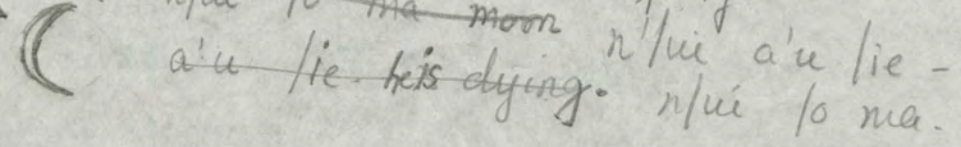 ma moon n'/ui a'u /ie -
a'u /ie. he is dying. n/ui /o ma.